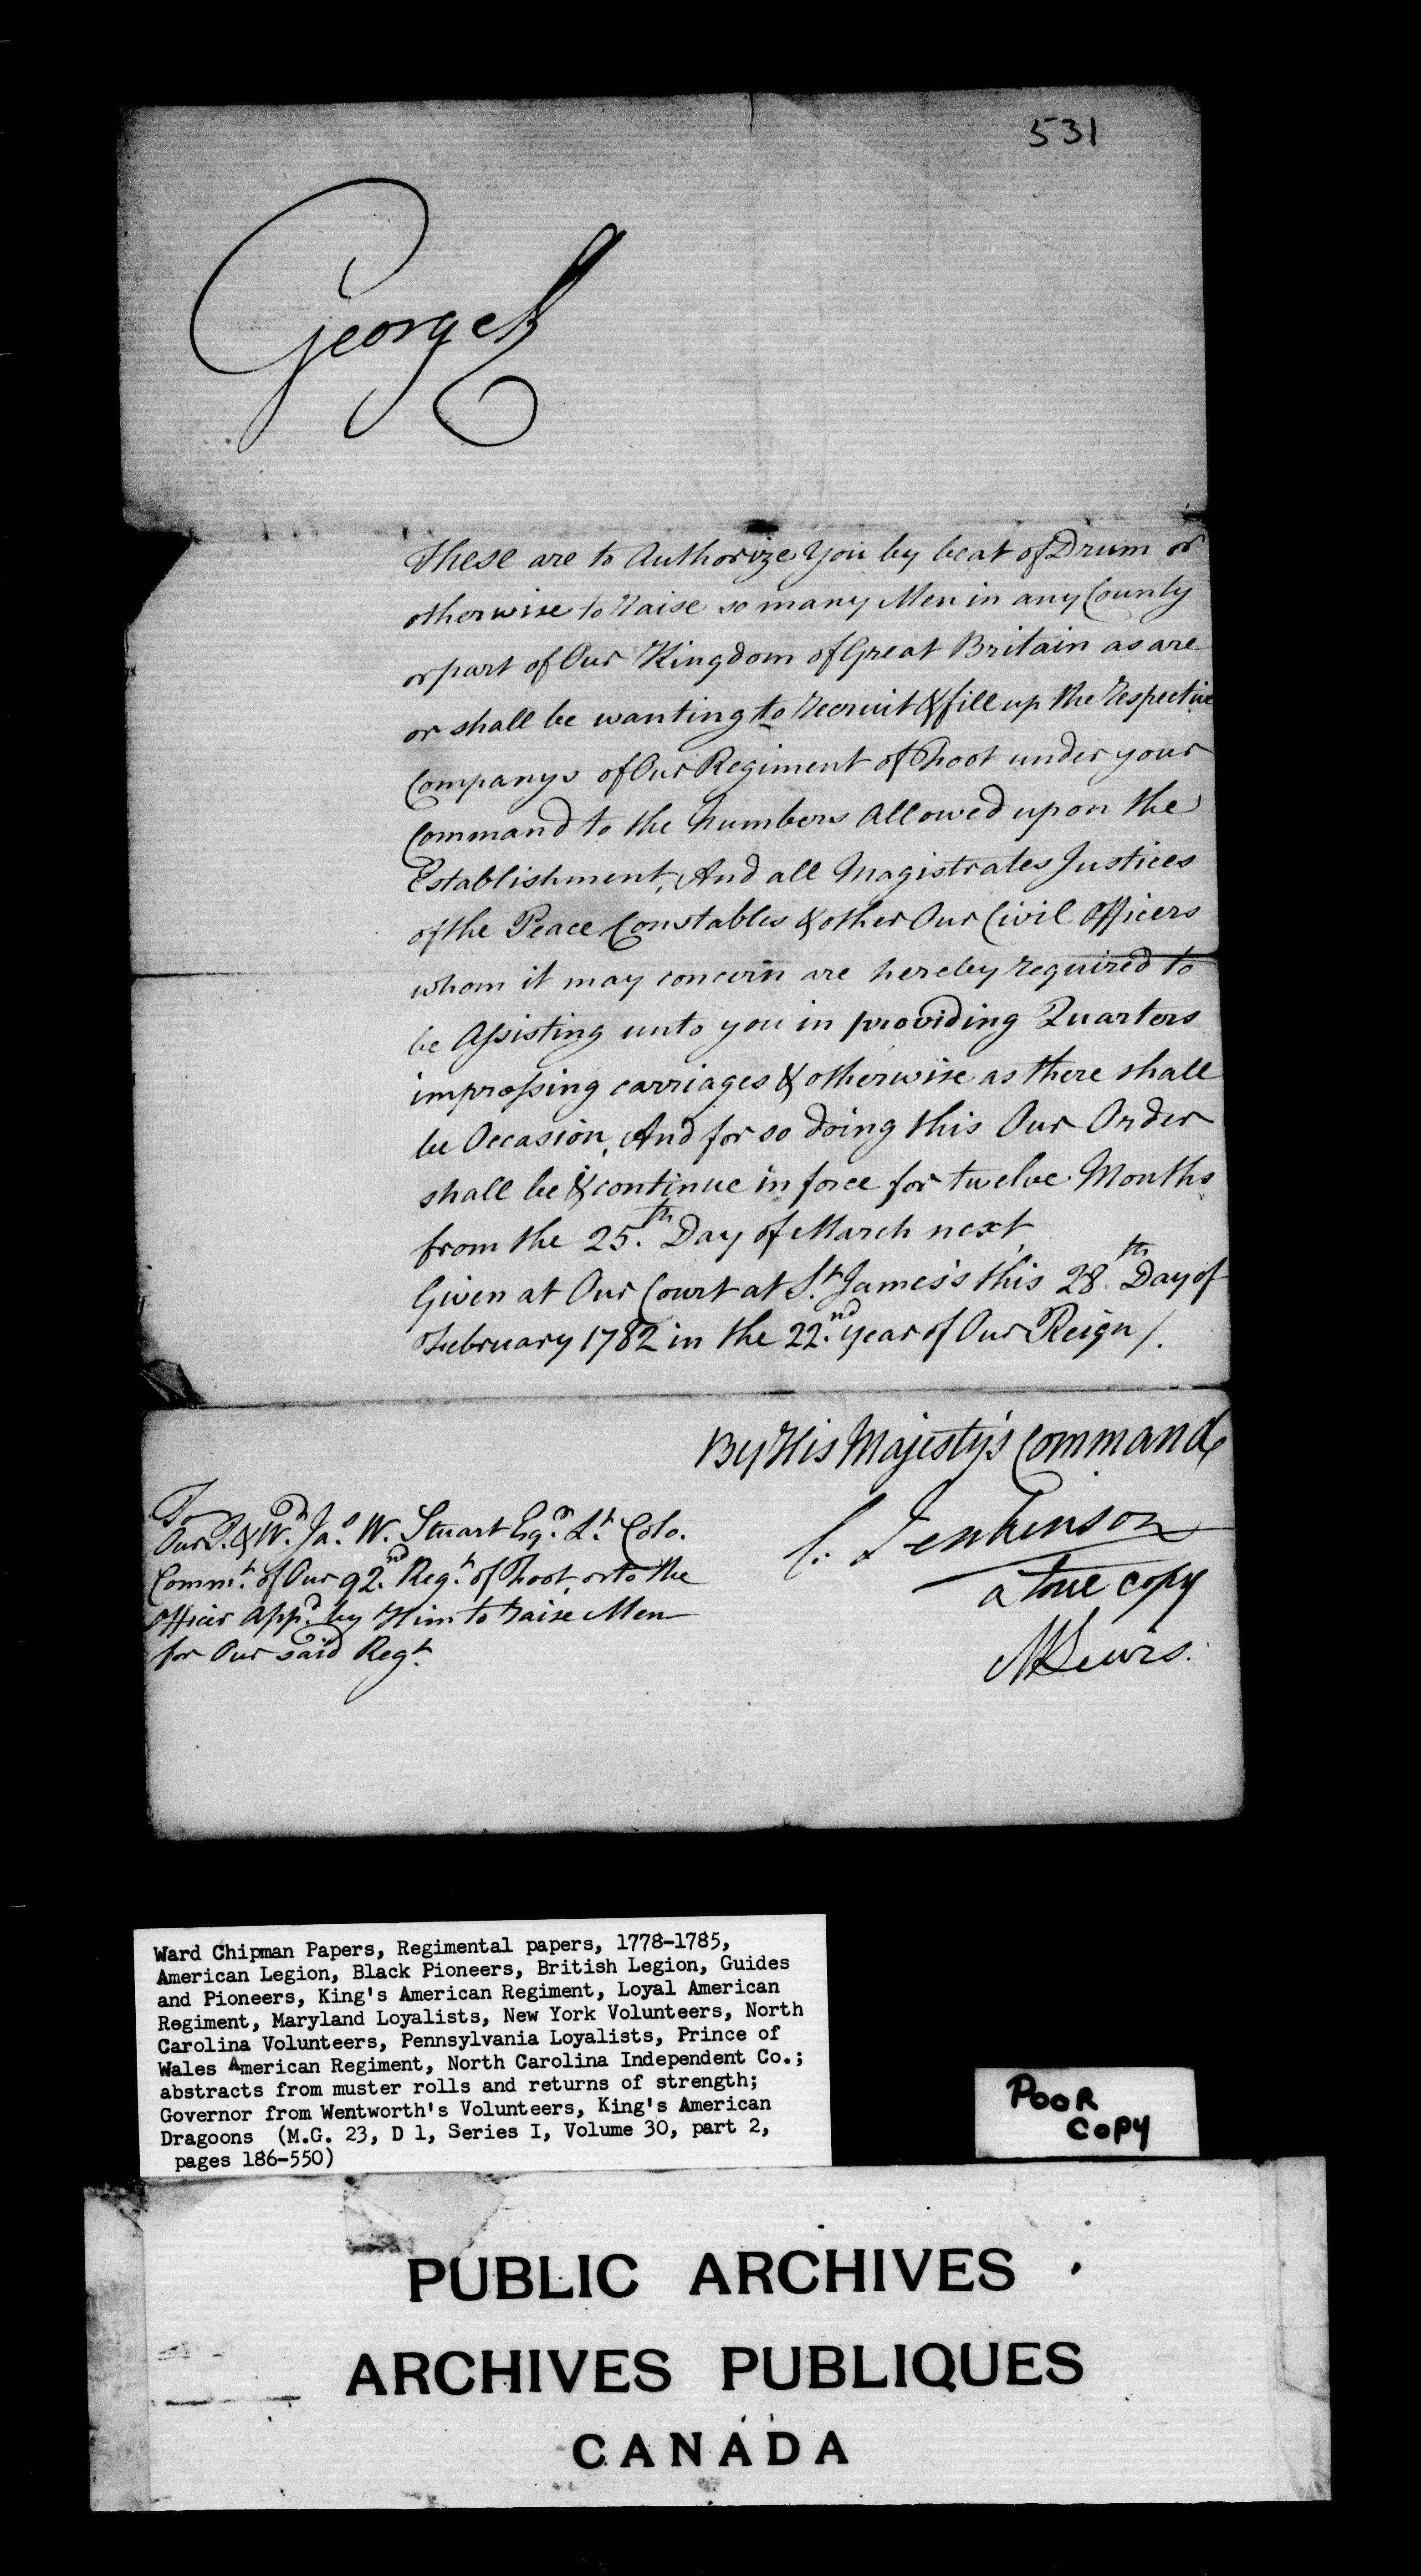 531
George R
These are to Authorize You by beat of Drum or
otherwise to raise so many Men in any County
or part of Our Kingdom of Great Britain as are
or shall be wanting to recruit & fill up the respective
Companys of Our Regiment of Foot under your
Command to the Numbers Allowed upon the
Establishment, And all Magistrates Justices
of the Peace Constables & other Our Civil Officers
whom it may concern are hereby required to
be Assisting unto you in providing Quarters
impressing carriages & otherwise as there shall
be Occasion, And for so doing this Our Order
shall be & continue in force for twelve Months
from the 25.th Day of March next,
Given at Our Court at St. James's this 28.th Day of
February 1782 in the 22.nd year of Our Reign /.
By His Majesty's Command
C. Jenkinson
a true copy
MLewis.
To
Our T. & W.d Ja.s W. Stuart Esq.r Lt. Colo.
Comm.t of Our 92.nd Reg.t of Foot, or to the
Officer App.d by Him to raise Men
for Our said Reg.t
Ward Chipman Papers, Regimental papers, 1778-1785,
American Legion, Black Pioneers, British Legion, Guides
and Pioneers, King's American Regiment, Loyal American
Regiment, Maryland Loyalists, New York Volunteers, North
Carolina Volunteers, Pennsylvania Loyalists, Prince of
Wales American Regiment, North Carolina Independent Co.;
abstracts from muster rolls and returns of strength;
Governor from Wentworth's Volunteers, King's American
Dragoons (M.G. 23, D 1, Series I, Volume 30, part 2,
pages 186-550)
POOR
COPY
PUBLIC ARCHIVES
ARCHIVES PUBLIQUES
CANADA